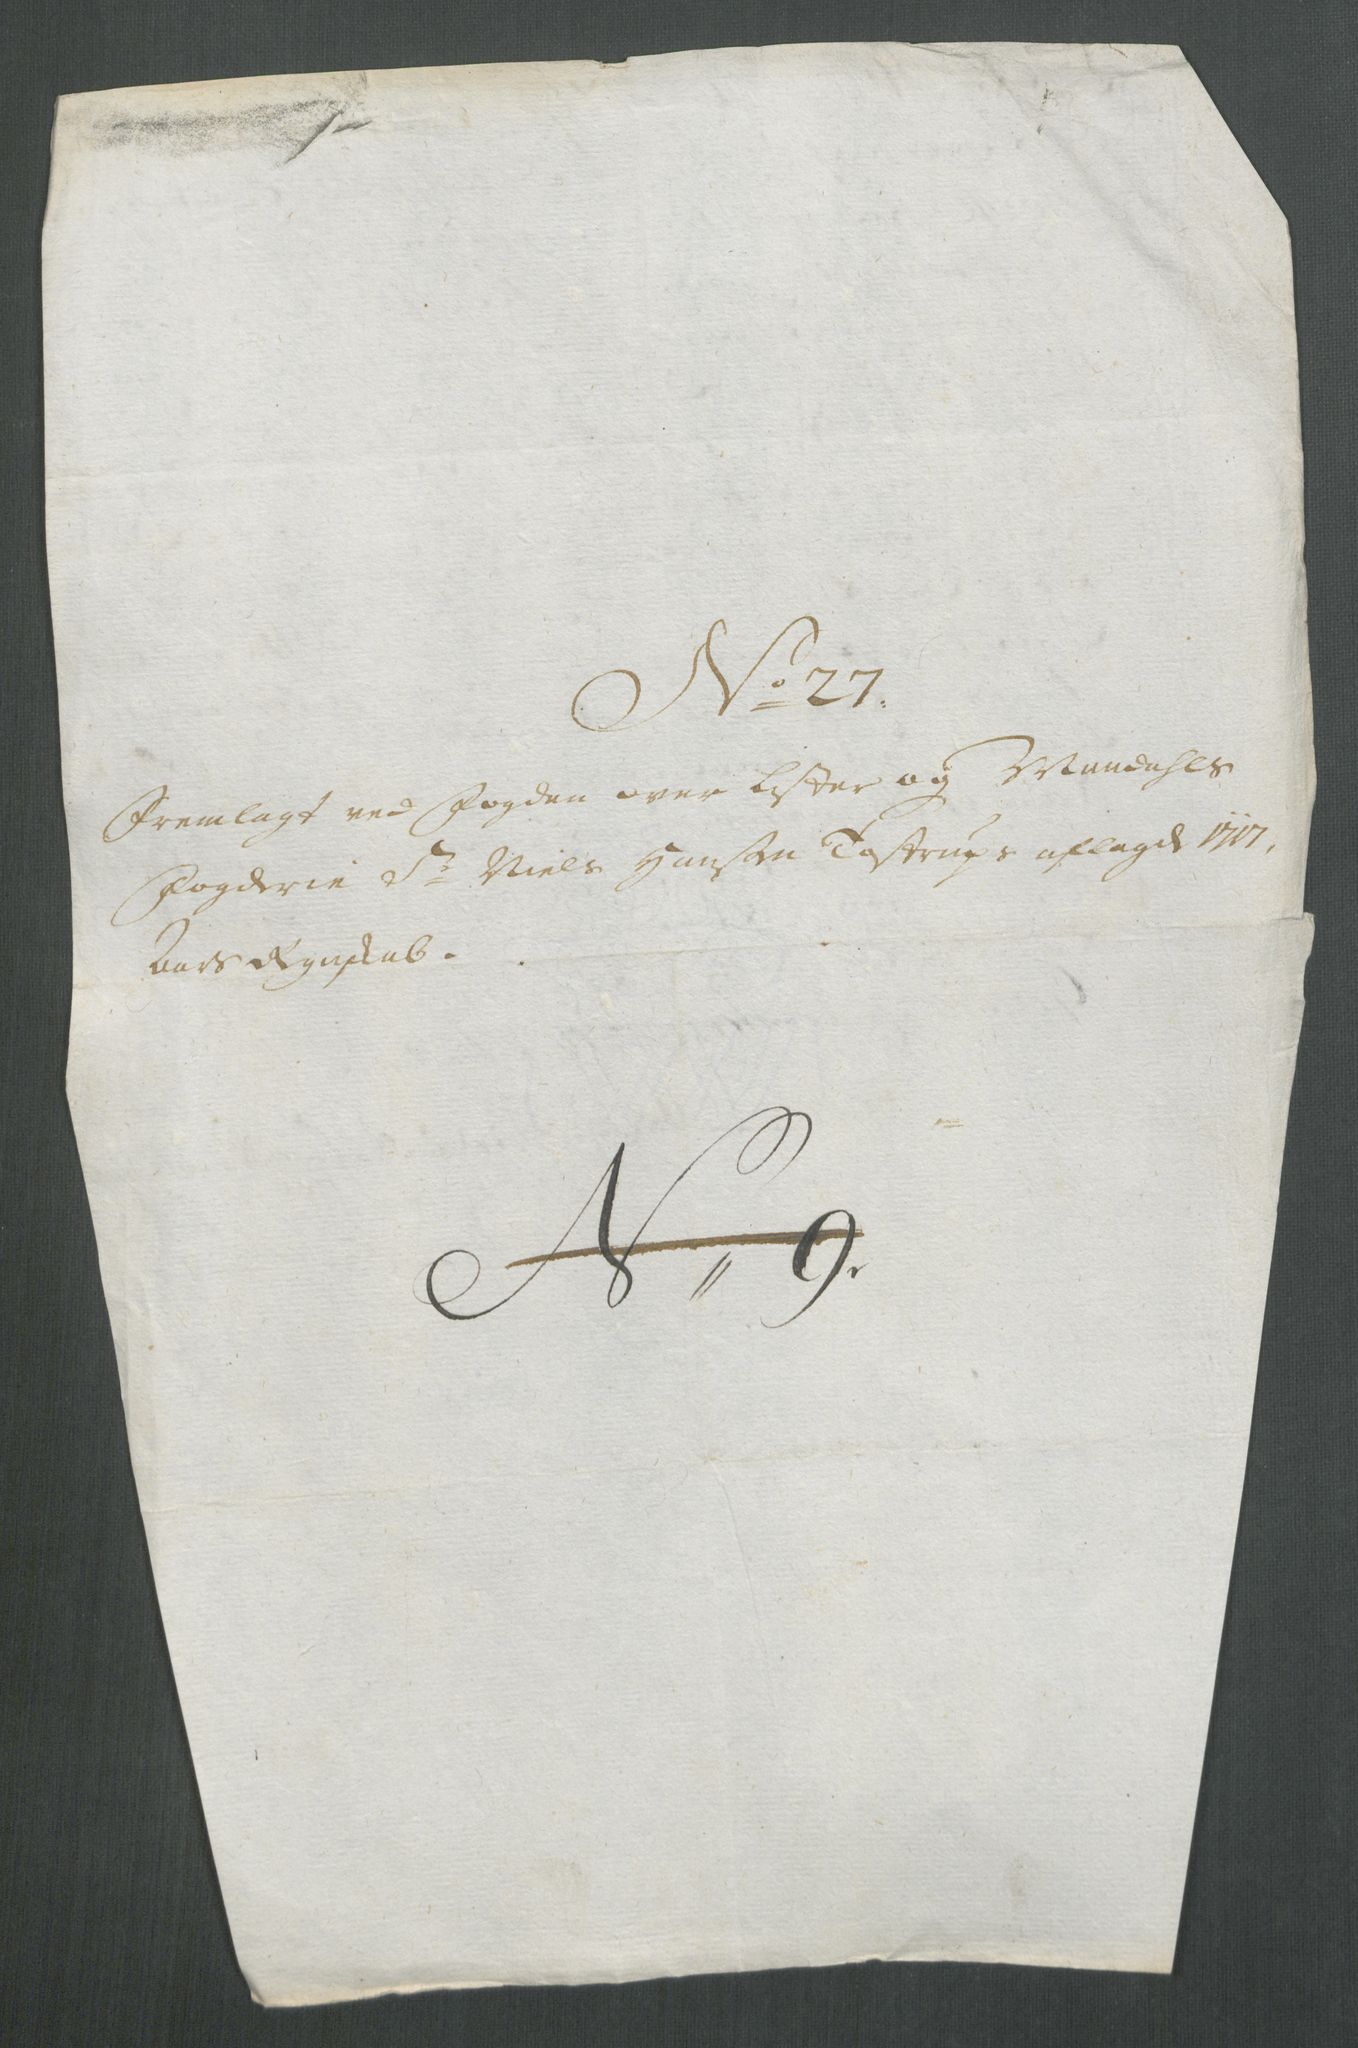 No 27.
Fremlagt ved Fogden over Lister og Mandahls
Fogderie Sr Niels Hansen Tostrups aflagde 1717.
Aars Regnskab.
N 9.